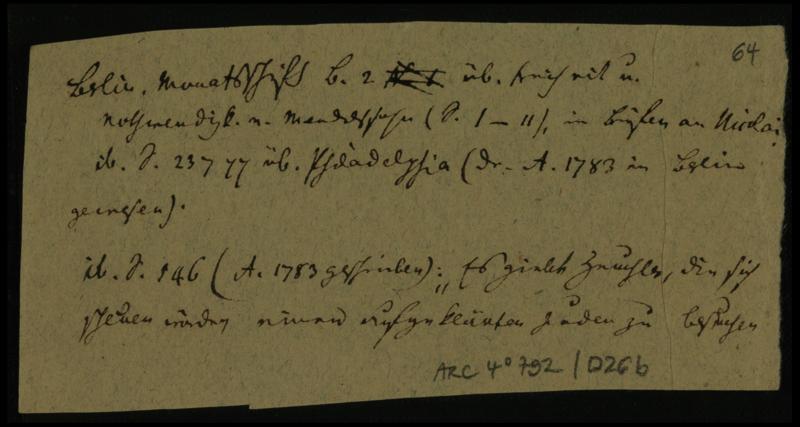 64
Berlin. Monatsschrift B. 2 üb. Freiheit u.
Nothwendigk. v. Mendelssohn (S. 1–11), in Briefen an Nicolai
ib. S. 237 ff üb. Philadelphia (Dr. A. 1783 in Berlin
gewesen).
ib. S. 546 (A. 1783 geschrieben): „Es giebt Heuchler, die sich
scheuen würden einen aufgeklärten Juden zu besuchen
ARC 4° 792 / D26b